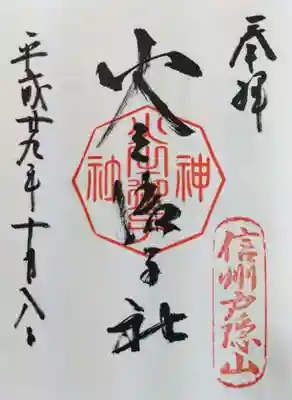 奉拝
信州戸隠山
火之御子社
神社
平成廿九年十月八日